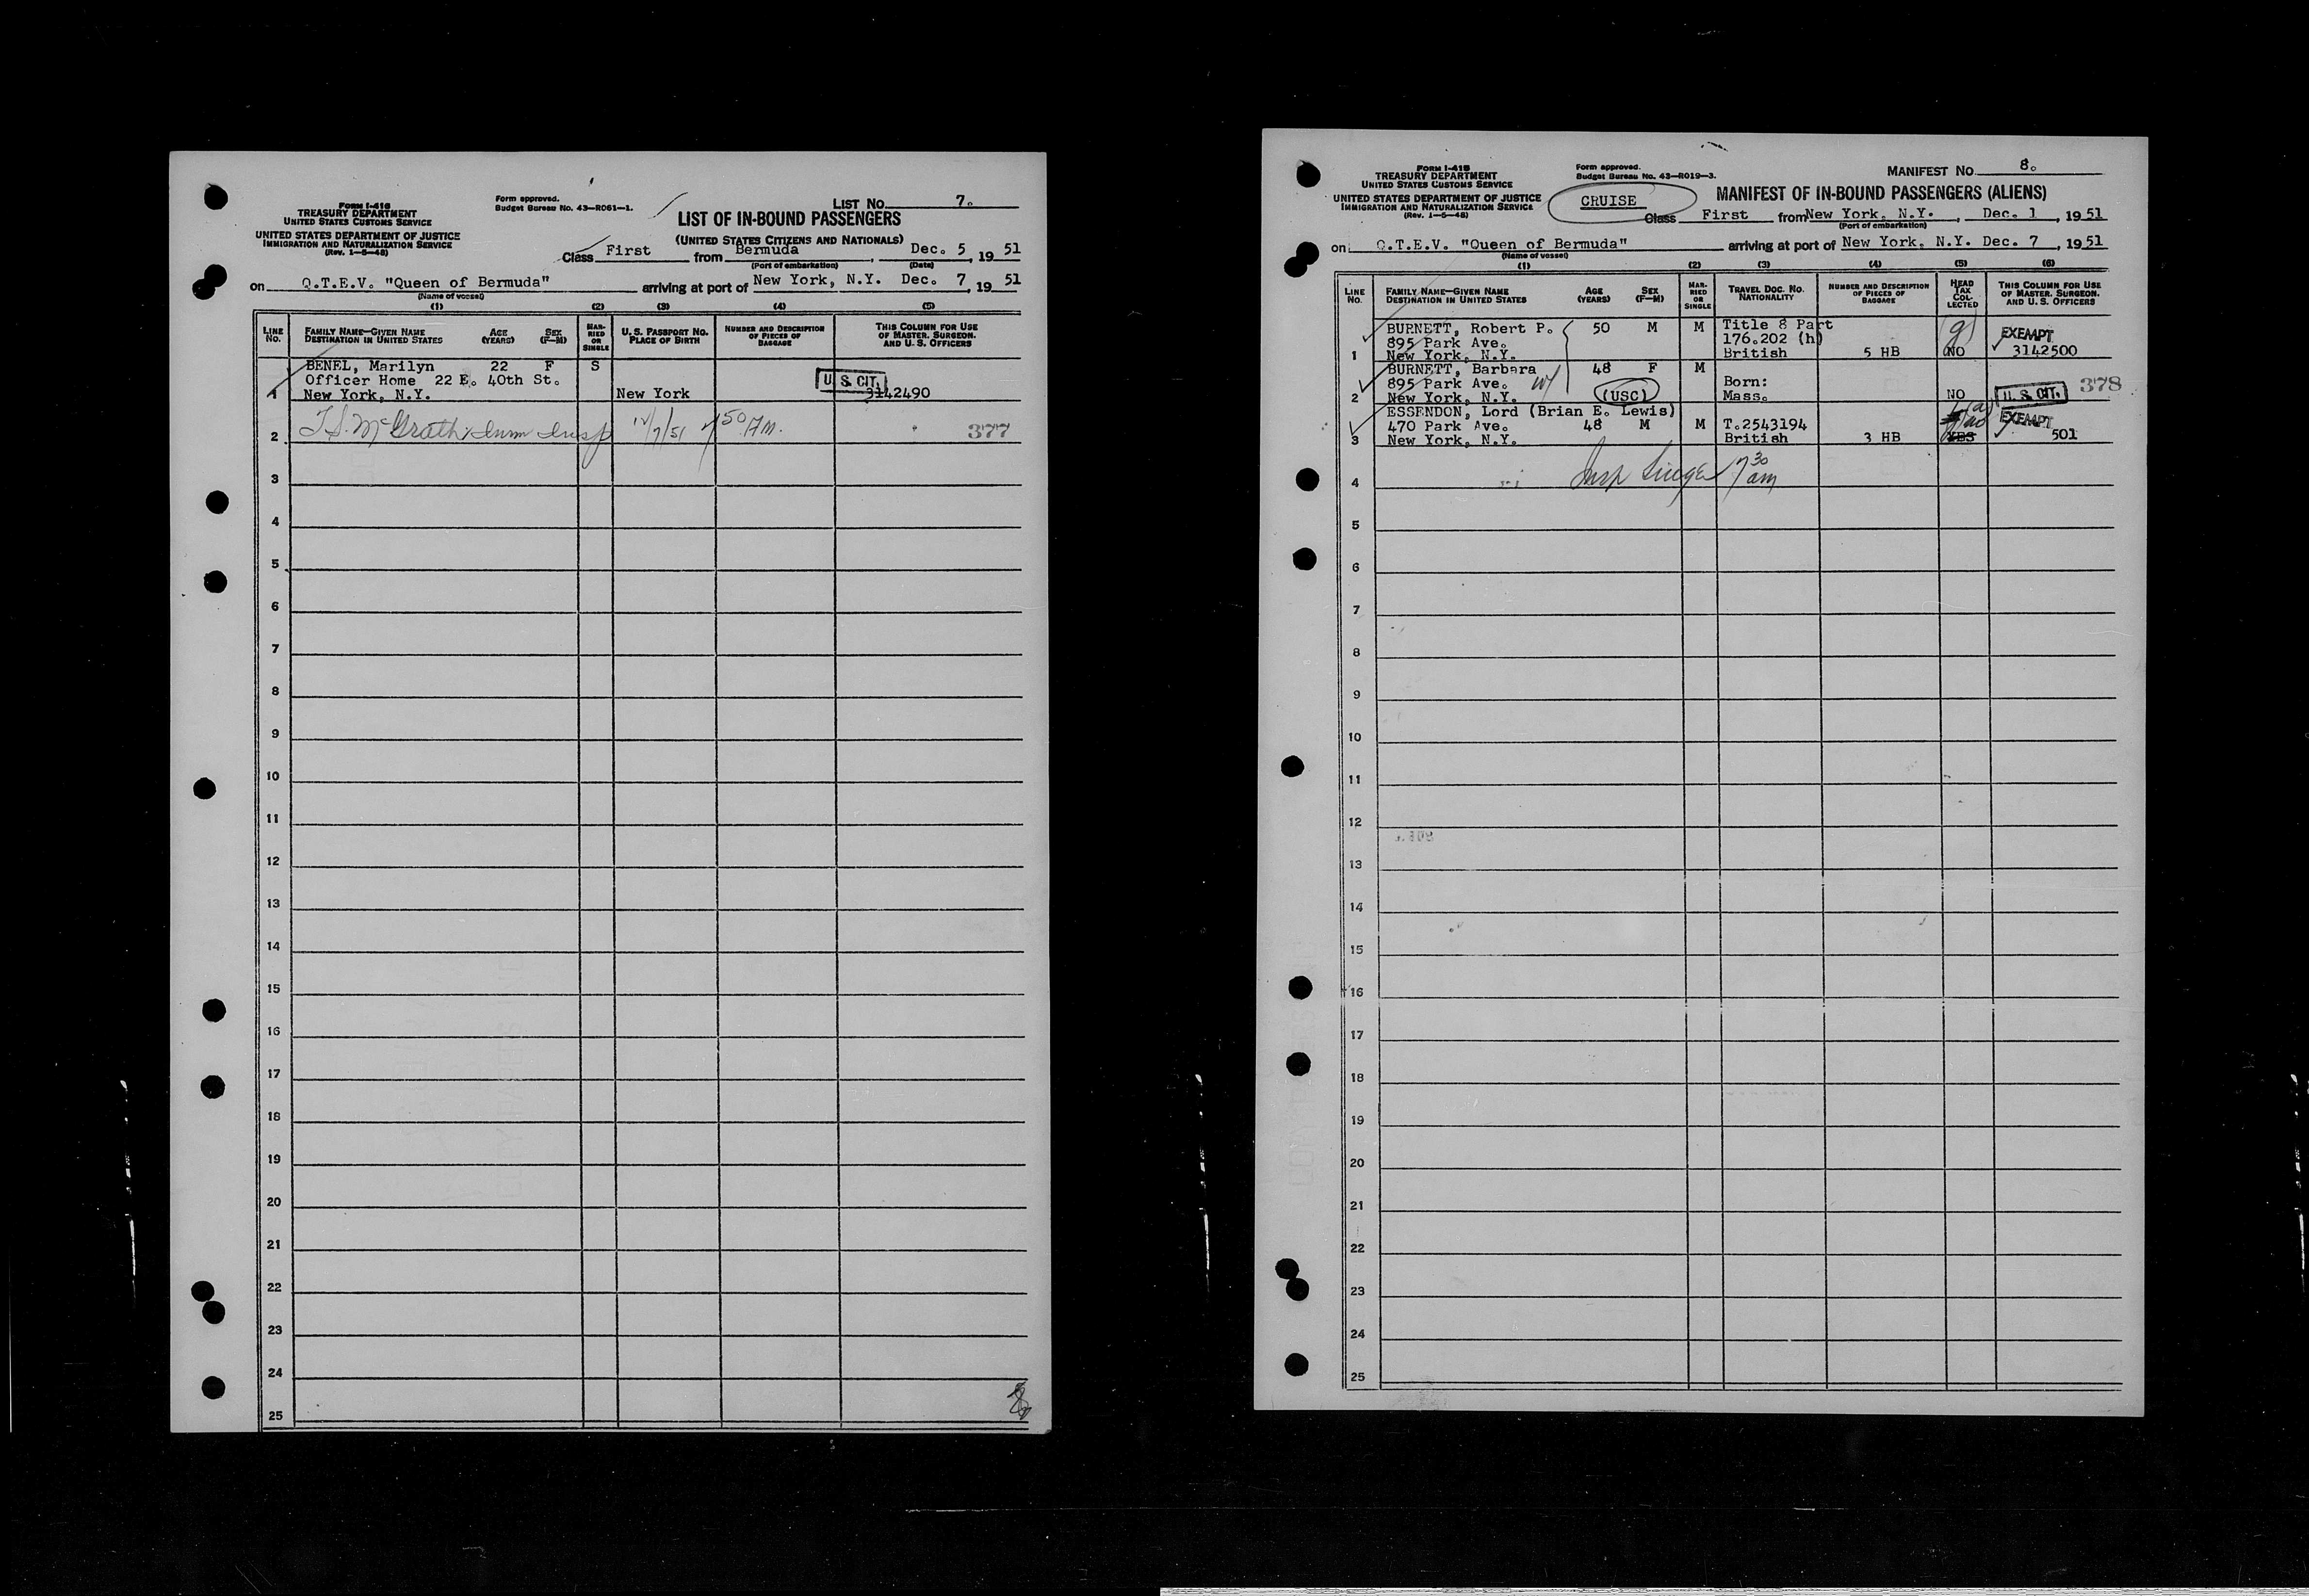 FORM I-416
TREASURY DEPARTMENT
UNITED STATES CUSTOMS SERVICE
UNITED STATES DEPARTMENT OF JUSTICE
IMMIGRATION AND NATURALIZATION SERVICE
(Rev. 1-5-48)
Form approved.
Budget Bureau No. 43-R061-1.
LIST No. 7.
LIST OF IN-BOUND PASSENGERS
(UNITED STATES CITIZENS AND NATIONALS)
Class First from Bermuda, Dec. 5, 1951
(Port of embarkation) (Date)
on Q.T.E.V. "Queen of Bermuda" arriving at port of New York, N.Y. Dec. 7, 1951
(Name of vessel)
(1) (2) (3) (4) (5)
LINE No. FAMILY NAME—GIVEN NAME DESTINATION IN UNITED STATES AGE (YEARS) SEX (F-M) MARRIED OR SINGLE U. S. PASSPORT NO. PLACE OF BIRTH NUMBER AND DESCRIPTION OF PIECES OF BAGGAGE THIS COLUMN FOR USE OF MASTER, SURGEON, AND U. S. OFFICERS
BENEL, Marilyn 22 F S
Officer Home 22 E. 40th St. U. S. CIT.
1 New York, N.Y. New York 3142490
2 T.S. McGrath Imm Insp 12/7/51 7 50 AM. 377
3
4
5
6
7
8
9
10
11
12
13
14
15
16
17
18
19
20
21
22
23
24
25
FORM I-415
TREASURY DEPARTMENT
UNITED STATES CUSTOMS SERVICE
UNITED STATES DEPARTMENT OF JUSTICE
IMMIGRATION AND NATURALIZATION SERVICE
(Rev. 1-5-48)
Form approved.
Budget Bureau No. 43-R019-3.
MANIFEST No. 8.
MANIFEST OF IN-BOUND PASSENGERS (ALIENS)
CRUISE
Class First from New York, N.Y., Dec. 1, 1951
(Port of embarkation)
on Q.T.E.V. "Queen of Bermuda" arriving at port of New York, N.Y. Dec. 7, 1951
(Name of vessel)
(1) (2) (3) (4) (5) (6)
LINE No. FAMILY NAME—GIVEN NAME DESTINATION IN UNITED STATES AGE (YEARS) SEX (F-M) MARRIED OR SINGLE TRAVEL DOC. NO. NATIONALITY NUMBER AND DESCRIPTION OF PIECES OF BAGGAGE HEAD TAX COLLECTED THIS COLUMN FOR USE OF MASTER, SURGEON, AND U. S. OFFICERS
BURNETT, Robert P. 50 M M Title 8 Part
895 Park Ave. 176.202 (h) EXEMPT
1 New York, N.Y. British 5 HB NO 3142500
BURNETT, Barbara 48 F M
895 Park Ave. w/ Born: 378
2 New York, N.Y. (USC) Mass. NO U. S. CIT.
ESSENDON, Lord (Brian E. Lewis)
470 Park Ave. 48 M M T.2543194 EXEMPT
3 New York, N.Y. British 3 HB YES 501
4 Insp Singer 7 30 am
5
6
7
8
9
10
11
12
13
14
15
16
17
18
19
20
21
22
23
24
25